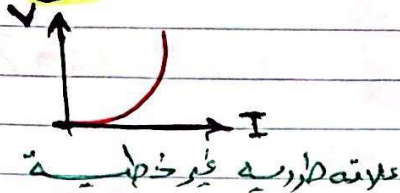 V
I
علاقه طرديه غير خطيــة